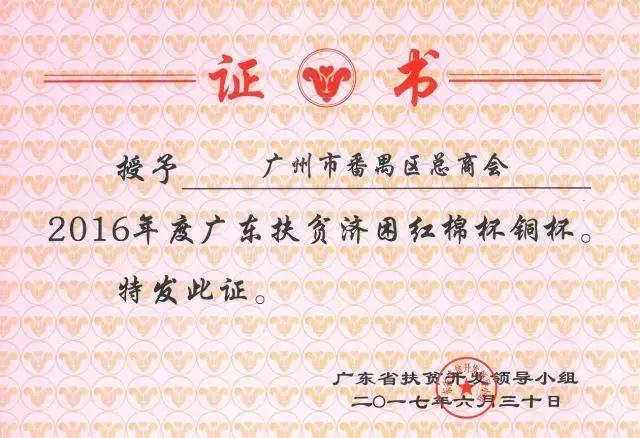 证 书
授予 广州市番禺区总商会
2016年度广东扶贫济困红棉杯铜杯。
特发此证。
广东省扶贫开发领导小组
二〇一七年六月三十日